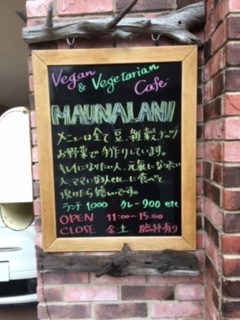 Vegan
& Vegetarian
Cafe
MAUNALANI
メニューは全て豆、雑穀、ナッツ
お野菜で手作りしています。
キレイになりたい人、元気になりたい
人、ママになる人etc…に食べて
頂けたら嬉しいです。
ランチ 1000 カレー 900 etc
OPEN 11:00~15:00
CLOSE 金、土 臨時有り